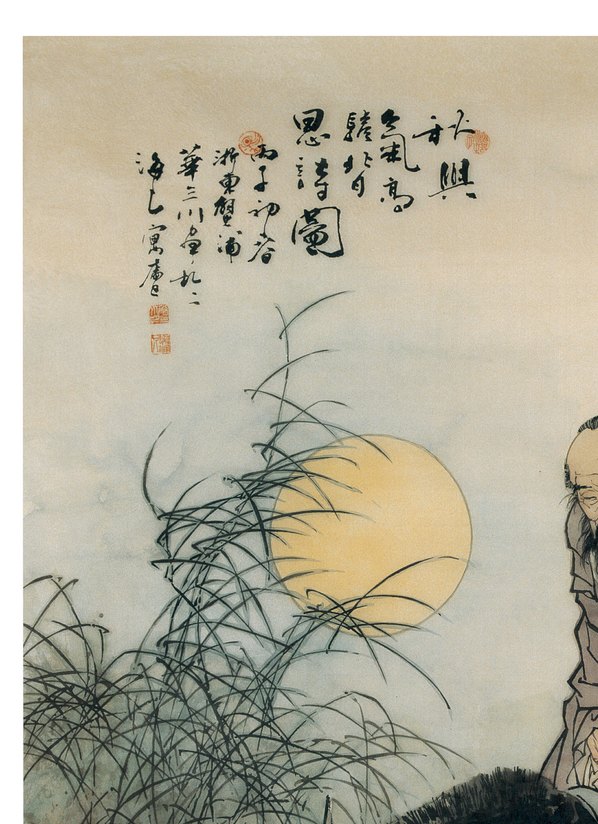 秋興
氣高
驢背
思詩圖
丙子初春
浙東蟹浦
華三川畫於
海上寓廬